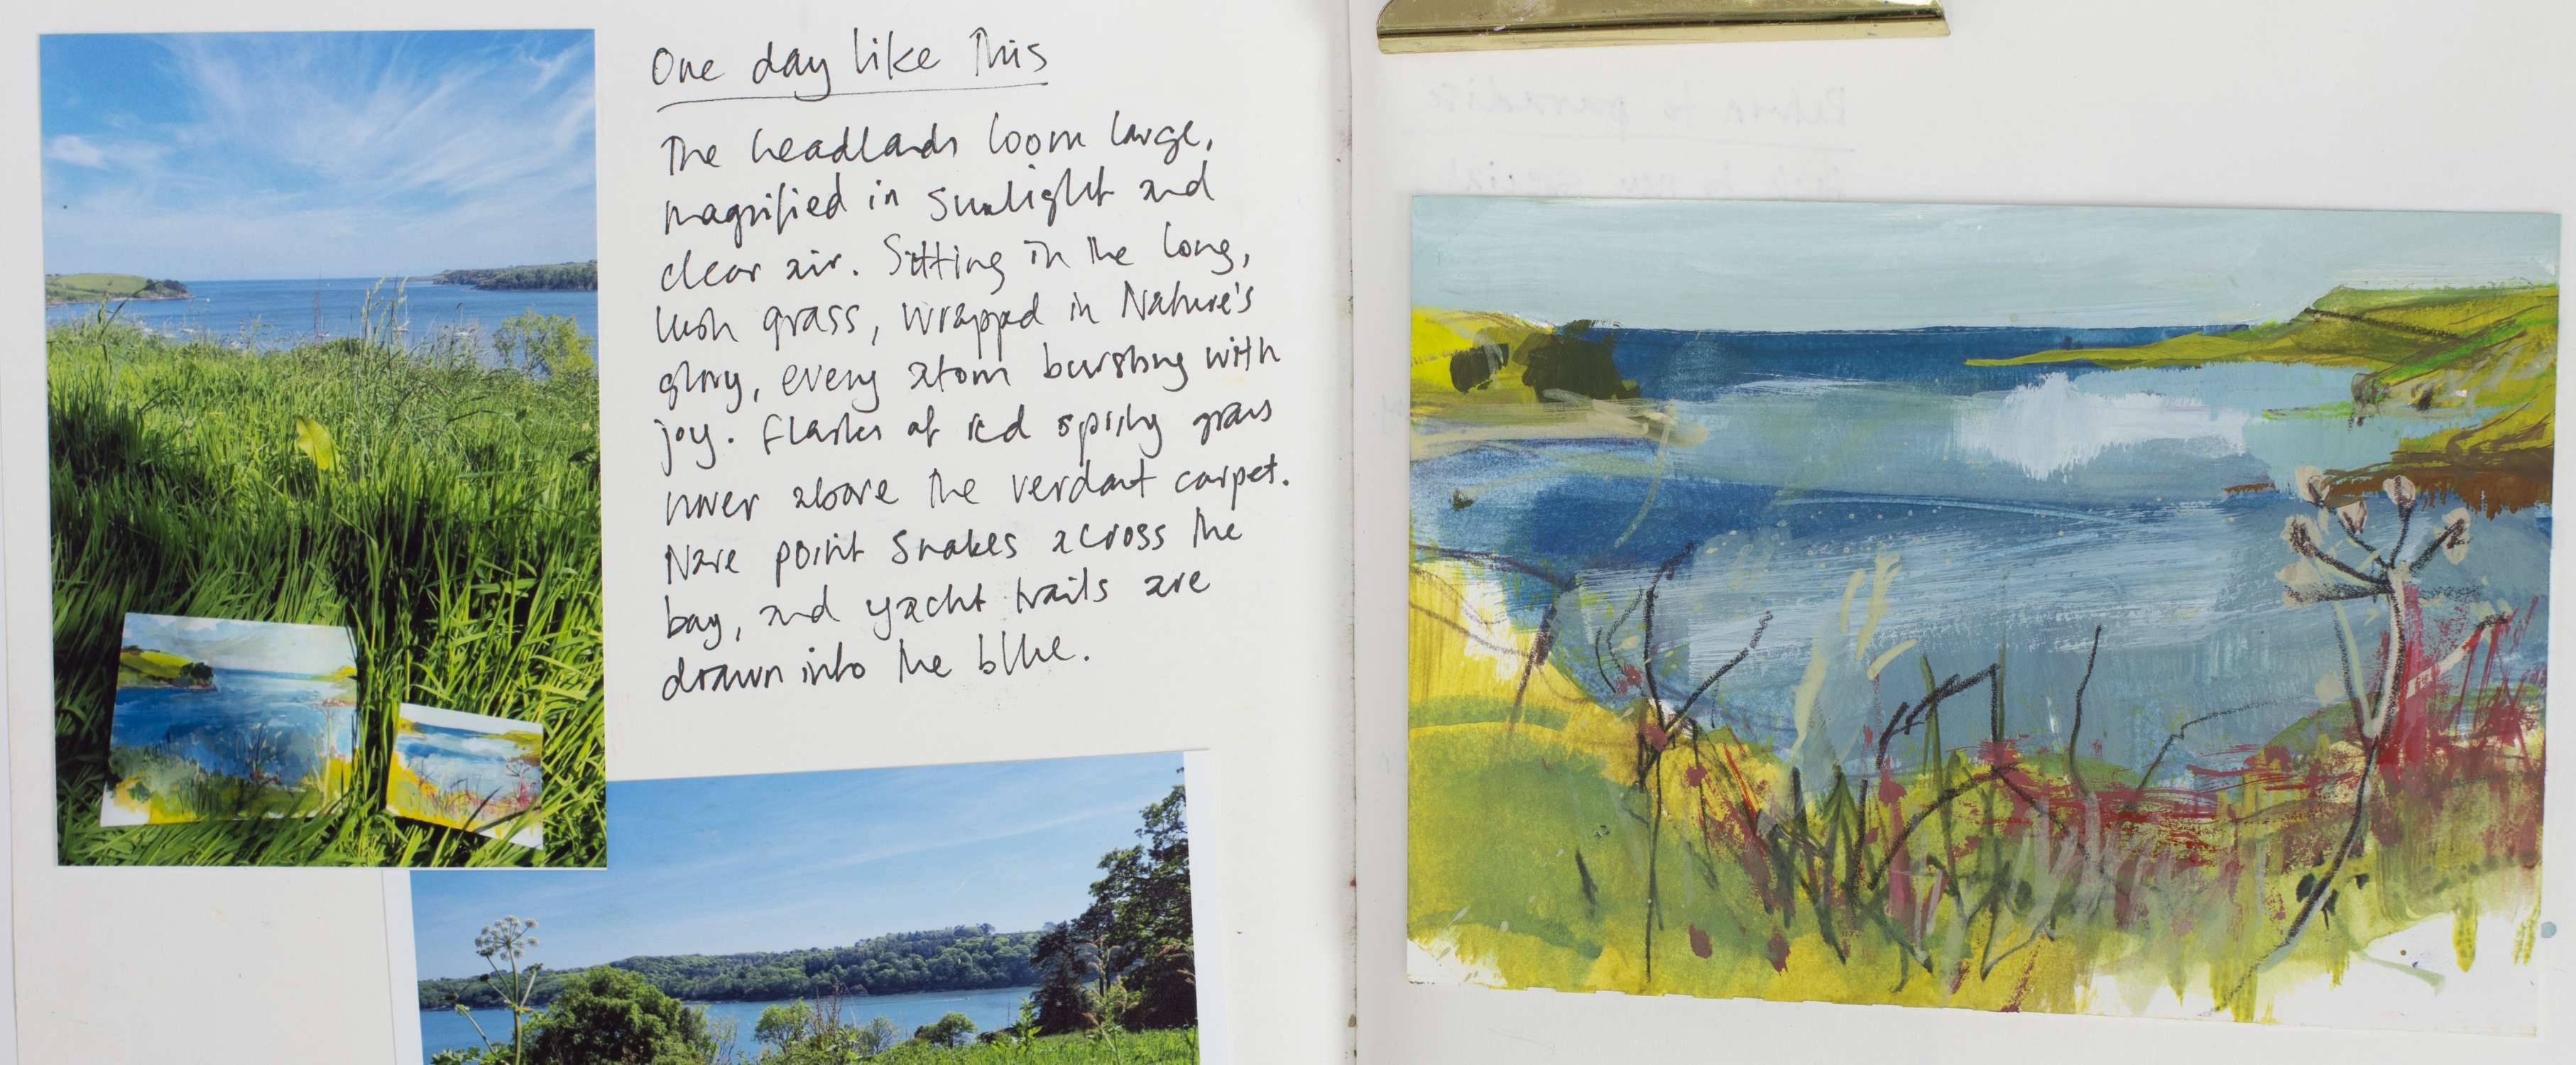 One day like This
The headlands loom large,
magnified in sunlight and
clear air. Sitting in the long,
lush grass, wrapped in Nature's
glory, every atom bursting with
joy. Flashes of red spiky grass
hover above the verdant carpet.
Nare point snakes across the
bay, and yacht trails are
drawn into the blue.
Return to paradise